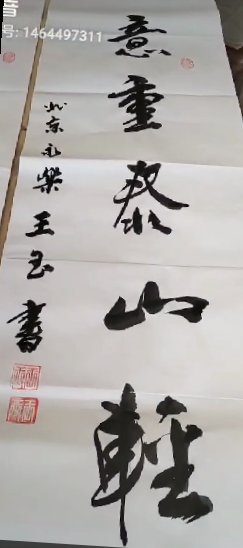 音
号: 1464497311
意重泰山轻
北京永乐王玉书